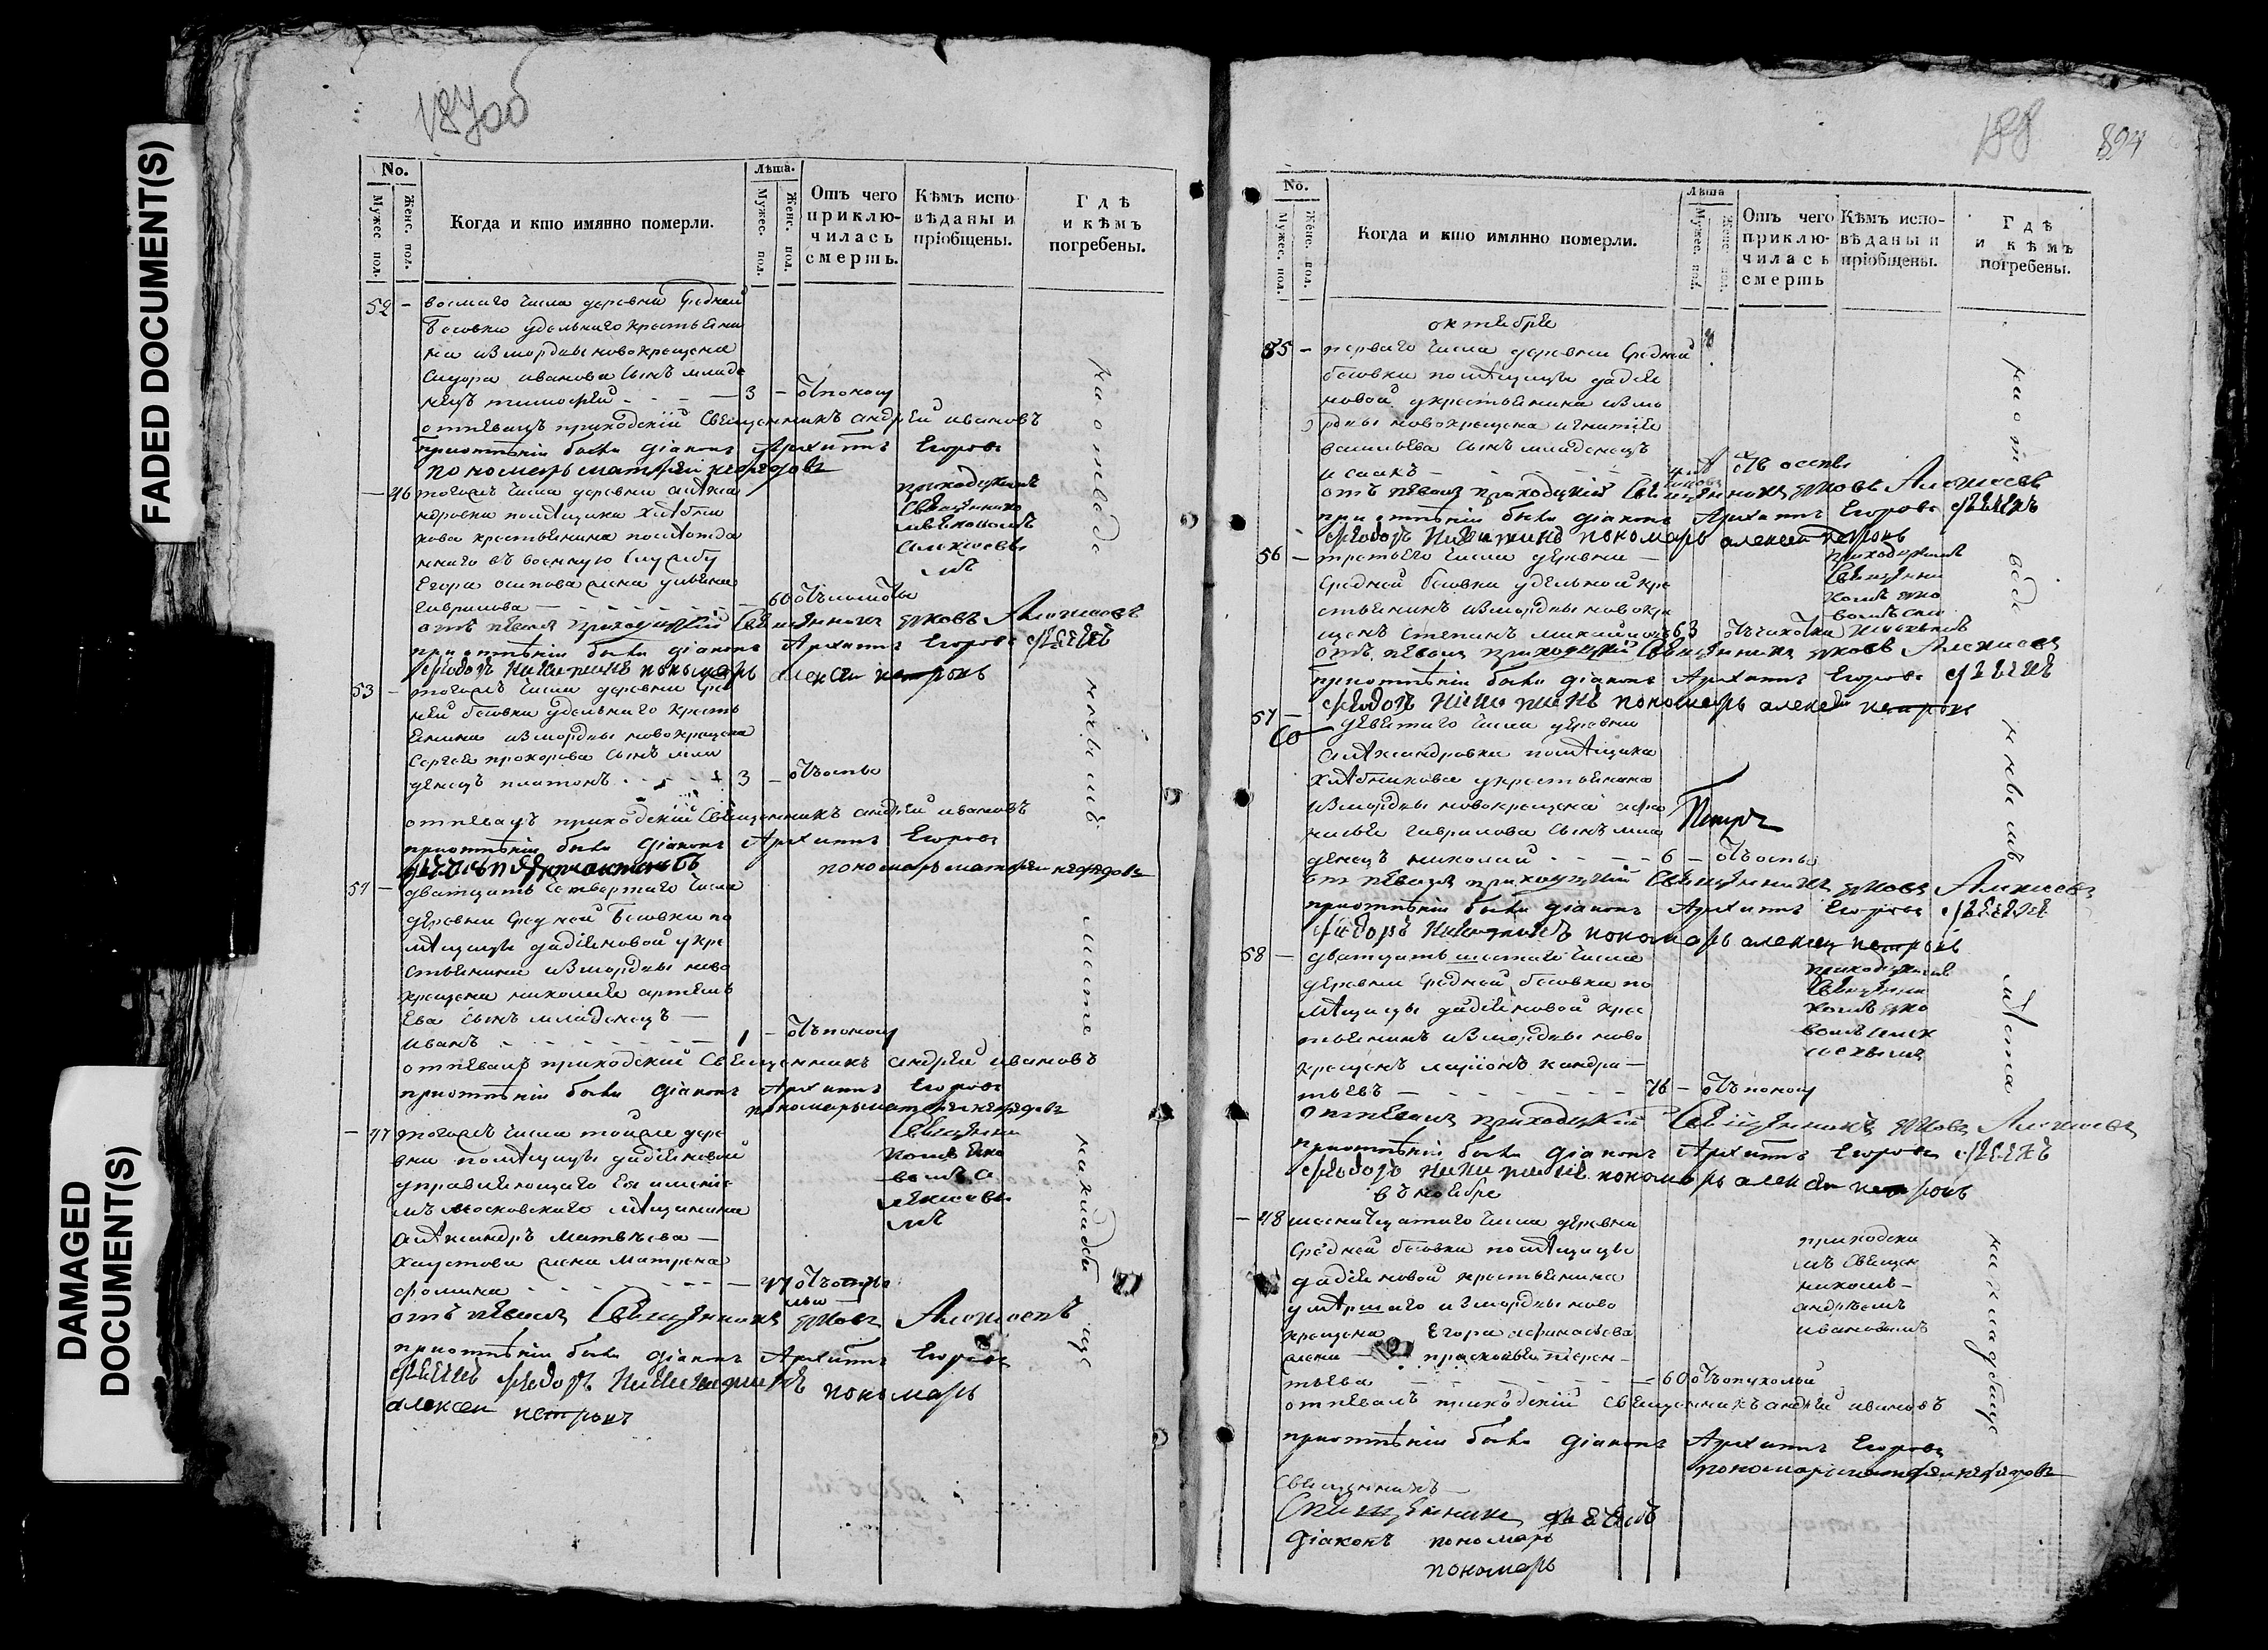 FADED DOCUMENT(S)
DAMAGED
DOCUMENT(S)
187об
No.
Мужес. пол.
Женс. пол.
Когда и кто имянно померли.
Лѣта.
Мужес. пол.
Женс. пол.
Отъ чего
приклю-
чилась
смерть.
Кѣмъ испо-
вѣданы и
пріобщены.
Гдѣ
и кѣмъ
погребены.
52 - восмаго числа деревни Средней
Бесовки удельнаго крестьяни
на из мордвы новокрещена
Сидора иванова сынъ младе
нецъ тимофей - 3 - отъ поносу
отпевалъ приходскій Священникъ андрей ивановъ
при отпѣніи были діаконъ Архипъ Егоровъ
пономарь матфей нефедовъ
- 46 тогожъ числа деревни алѣкса
ндровки помѣщика Хлѣбни
кова крестьянина
ннаго въ военную службу
Егора осипова жена ульяна
гаврилова - 60
приходскимъ
Священнико
мъ яковомъ
алексѣевы
мъ
отъ певалъ приходцкій Священникъ яковъ Алексѣевъ
при отпѣніи были діаконъ Архипъ Егоровъ
Феодоръ Никитинъ пономарь алексей петровъ
53 - тогожъ числа деревни Сред
ней бесовки удельнаго кресть
янина из мордвы новокрещена
Сергея прохорова сынъ мла
денецъ платонъ - 3 - отъ оспы
отпевалъ приходскій Священникъ андрей ивановъ
при отпѣніи были діаконъ Архипъ Егоровъ
пономарь матфей нефедовъ
54 - дватцать четвертаго числа
деревни Средней Бесовки по
мѣщицы дадіяновой у кре
стьянина из мордвы ново
крещена николая артемь
ева сынъ младенецъ -
иванъ - 1 - отъ поносу
отпевалъ приходскій Священникъ андрей ивановъ
при отпѣніи были діаконъ Архипъ Егоровъ
пономарь матфей нефедовъ
- 47 тогожъ числа тойже дере
вни помѣщицы дадіяновой
управляющаго Ея имѣніе
мъ московскаго мѣщанина
алѣксандръ матвѣева -
Хаустова жена матрена
фомина - 47
Священни
комъ яко
вомъ а
лексѣевы
мъ
отъ певалъ Священникъ яковъ Алексѣевъ
при отпѣніи были діаконъ Архипъ Егоровъ
Феодоръ Никитинъ пономарь
алексеи петровъ
на отведе
нномъ
месте
кладби
ще
188
894
No.
Мужес. пол.
Женс. пол.
Когда и кто имянно померли.
Лѣта
Мужес. пол.
Женс. пол.
Отъ чего
приклю-
чилась
смерть
Кѣмъ испо-
вѣданы и
пріобщены.
Гдѣ
и кѣмъ
погребены.
октября
55 - перваго числа деревни Средней
бесовки помѣщицы дадія
новой у крестьянина из мо
рдвы новокрещена игнатія
васильева сынъ младенецъ
исаакъ - отъ оспы
отъ певалъ приходцкій Священникъ яковъ Алексѣевъ
при отпѣніи были діаконъ Архипъ Егоровъ
Феодоръ Никитинъ пономарь алексей петровъ
56 - третьего числа деревни -
Средней бесовки удельной кре
стьянинъ из мордвы новокре
щенъ степанъ михайловъ 63 отъ чахотки
приходцкимъ
Священни
комъ яко
вомъ але
отъ певалъ приходцкій Священникъ яковъ Алексѣевъ
при отпѣніи были діаконъ Архипъ Егоровъ
Феодоръ Никитинъ пономарь алексей петровъ
57 - девятаго числа деревни
алѣксандровки помѣщика
хлѣбникова у крестьянина
из мордвы новокрещена
гаврилова сынъ мла
денецъ николай - 6 - отъ оспы
Петръ
отпевалъ приходцкій Священникъ яковъ Алексѣевъ
при отпѣніи были діаконъ Архипъ Егоровъ
Феодоръ Никитинъ пономарь алексей петровъ
58 - дватцать шестаго числа
деревни Средней бесовки по
мѣщицы дадіяновой крес
тьянинъ из мордвы ново
крещенъ ларіонъ кандра -
тьевъ - 76 - отъ поносу
приходцкимъ
Священни
комъ яко
вомъ алек
сѣевымъ
отпевалъ приходцкій Священникъ яковъ Алексѣевъ
при отпѣніи были діаконъ Архипъ Егоровъ
Феодоръ Никитинъ пономарь алексей петровъ
в ноябре
- 48 шеснатцатаго числа деревни
Средней бесовки помѣщицы
дадіяновой крестьянина
умѣршаго из мордвы ново
крещена Егора афанасьева
жена прасковья терен -
тьева - 60 отъ опухоли
приходски
мъ Священ
никомъ -
андреемъ
ивановымъ
отпевалъ приходскій Священникъ андрей ивановъ
при отпѣніи были діаконъ Архипъ Егоровъ
пономарь матфей нефедовъ
Священникъ
Священникъ
Діаконъ пономарь
пономарь
на от
веде
нномъ
мѣсте
на кладбище